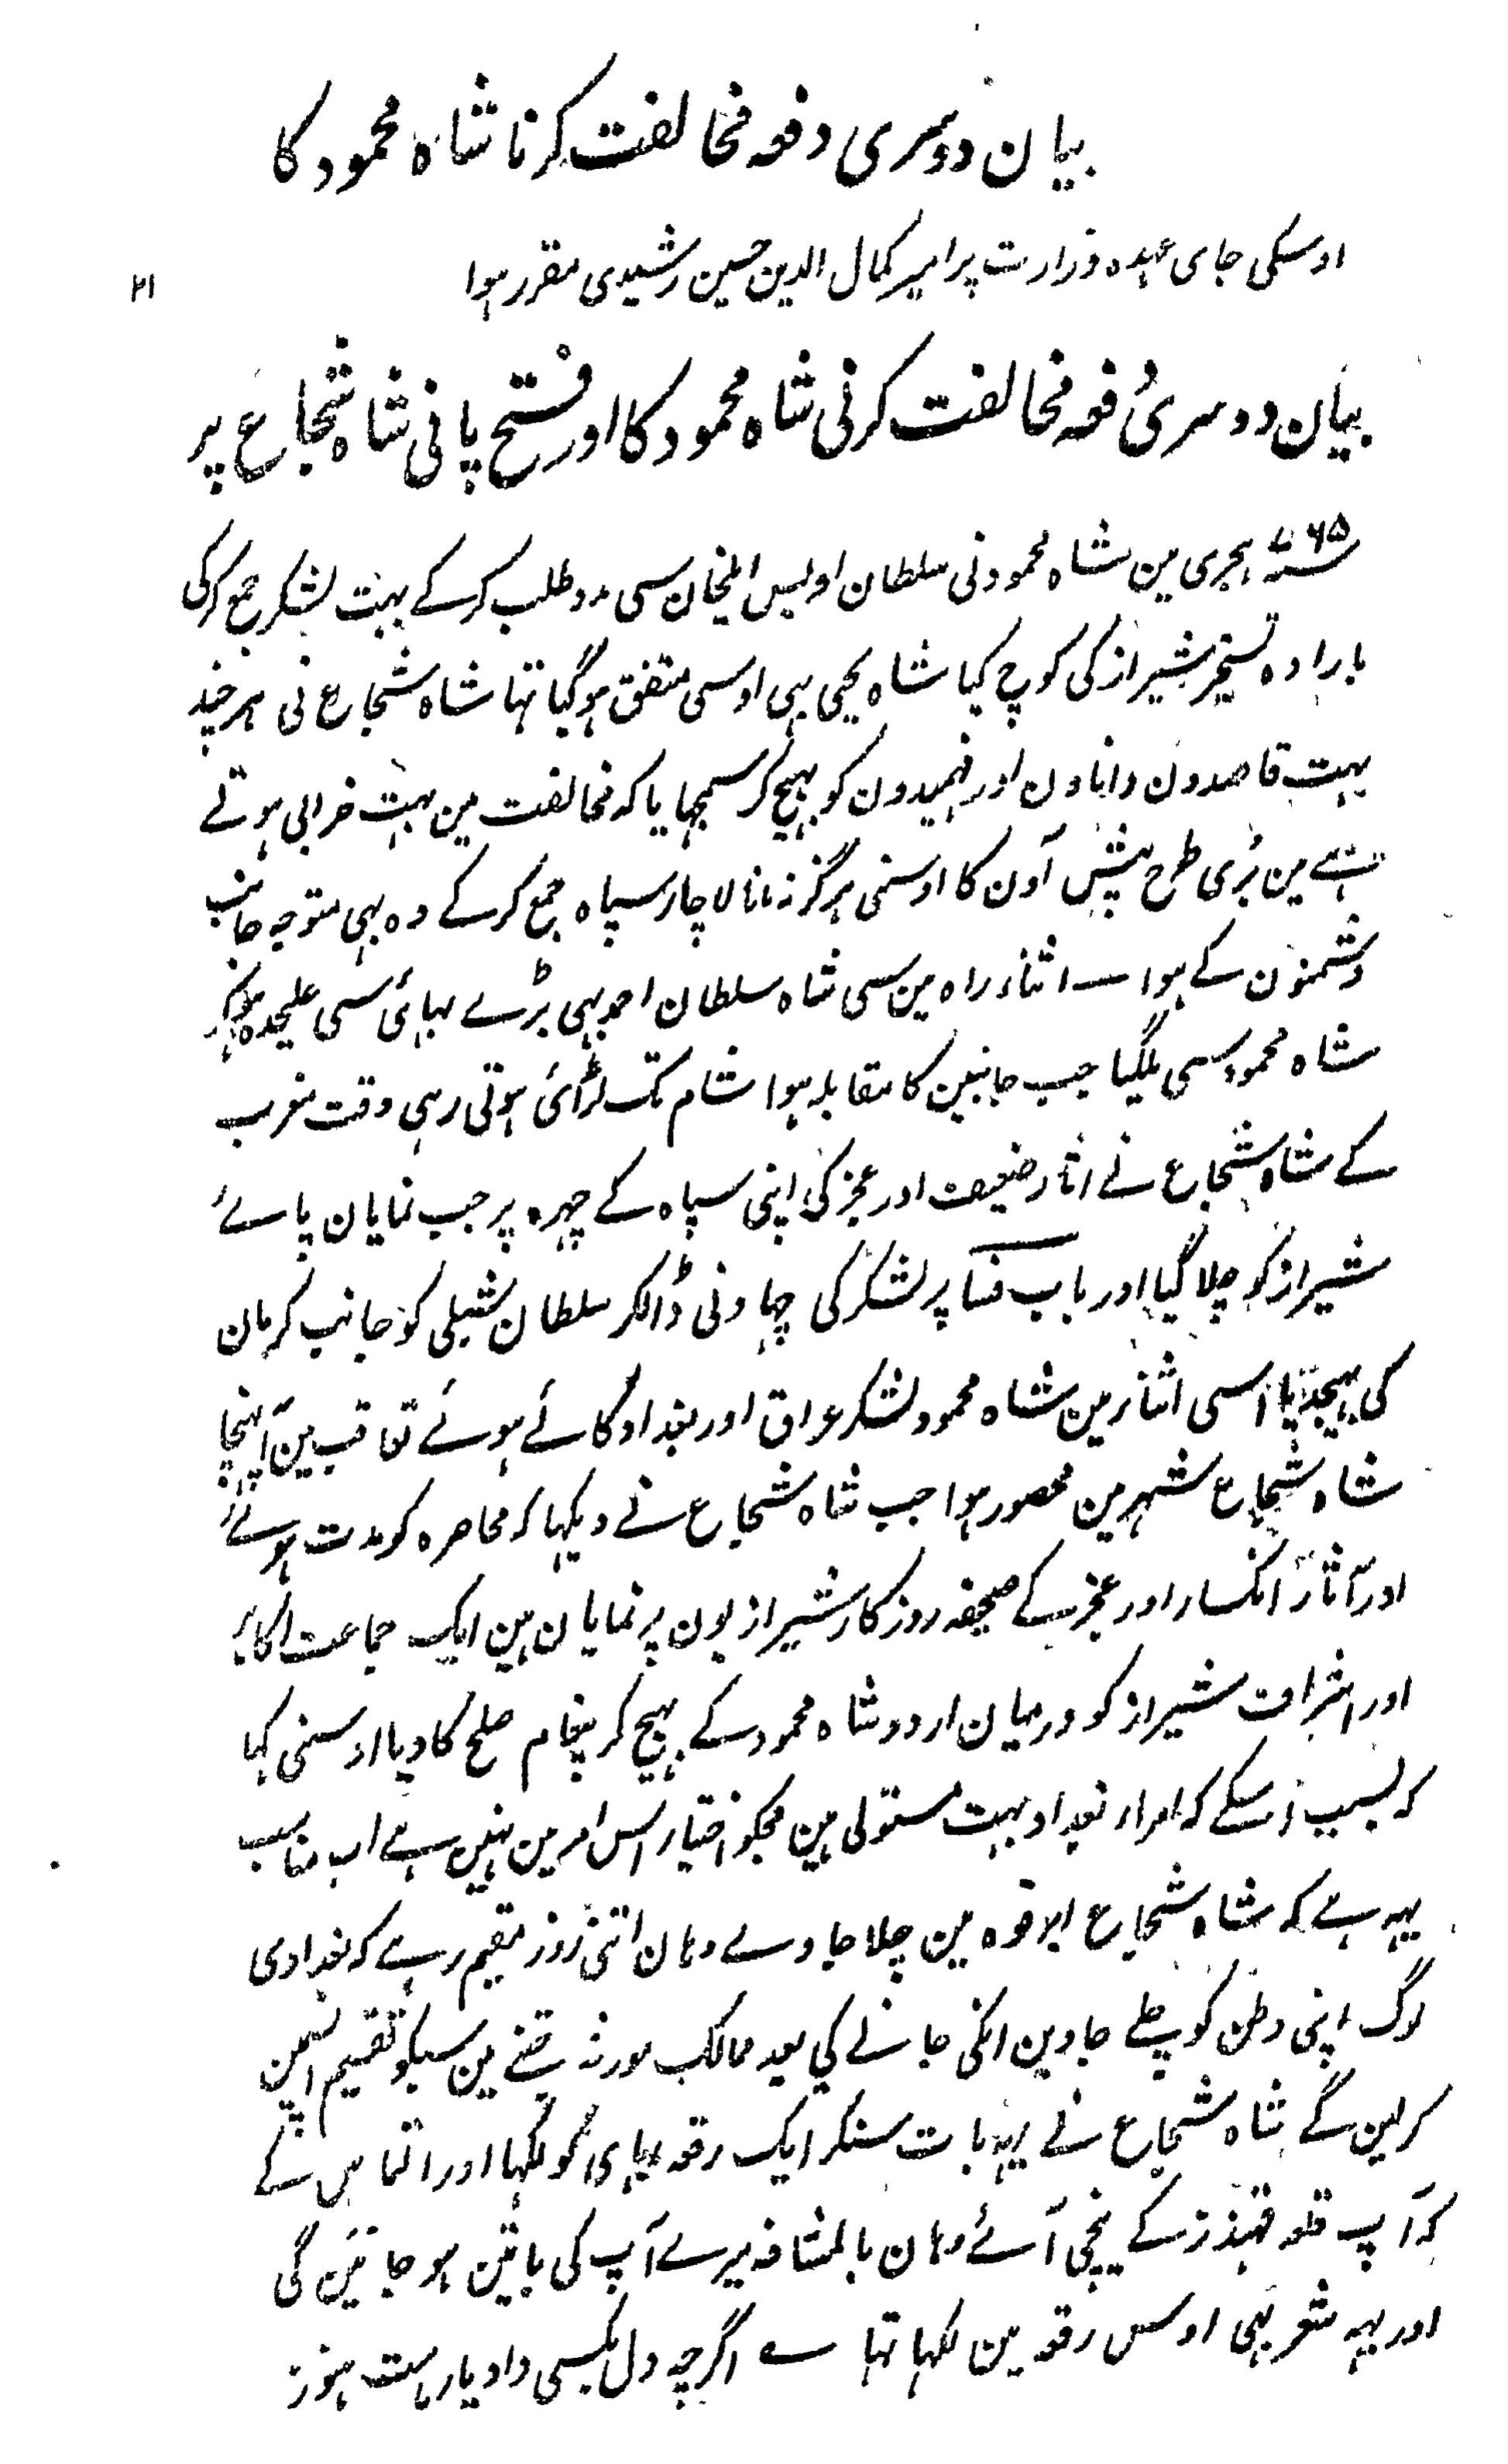 بیان دوسری دفعہ مخالفت کرنا شاہ محمود کا
اوسکی جای عہدہ وزارت پر امیر کمال الدین حسین رشیدی مقرر ہوا
۲۱
بیان دوسری دفعہ مخالفت کرنی شاہ محمود کا اور فتح پانی شاہ شجاع پر
۷۶۵ سنہ ہجری مین شاہ محمود نی سلطان اویس ایلخان سی مدد طلب کرکے بہت لشکر جمع کرکی
بارادہ تسخیر شیراز کی کوچ کیا شاہ یحیی بہی اوسی متفق ہوگیا تہا شاہ شجاع نی ہرچند
بہت قاصدون داناون اور فہمیدون کو بہیج کر سمجہایا کہ مخالفت مین بہت خرابی ہوتے
ہے مین بُری طرح پیش آون کا اوسنی ہرگز نہ مانا لاچار سپاہ جمع کرکے وہ بہی متوجہ جانب
دشمنون کے ہوا ــ اثناء راہ مین سی شاہ سلطان احمد بہی بڑے بہائی سی علیحدہ ہوکر
شاہ محمود سی ملگیا جب جانبین کا مقابلہ ہوا شام تک لڑائی ہوتی رہی وقت مغرب
کے شاہ شجاع نے اثار ضعیف اور عجز کی اپنی سپاہ کے چہرہ پر جب نمایان پائے
شیراز کو چلا گیا اور باب فسا پر لشکر کی چہاونی ڈالکر سلطان شبلی کو جانب کرمان
کی بہیجدیا اسی اثنار مین شاہ محمود لشکر عراق اور بغداد کا لئے ہوئے تعاقب مین آپہنچا
شاہ شجاع شہر مین محصور ہوا جب شاہ شجاع نے دیکہا کہ محاصرہ کو مدت ہوئے
اور آثار انکسار اور عجز کے صحیفہ روزکار شیرازیون پر نمایان ہین ایک جماعت اکابر
اور اشراف شیراز کو درمیان اردو شاہ محمود کے بہیج کر پیغام صلح کا دیا اوسنی کہا
کہ بسبب اسکے کہ امرار بغداد بہت مستولی ہین مجکو اختیار اس امر مین نہین ہے اب مناسب
یہہ ہے کہ شاہ شجاع ابرقوہ مین چلا جاوے وہان اتنی روز مقیم رہے کہ بغدادی
لوگ اپنی وطن کو چلے جاوین انکی جانے کی بعد ممالک موروثہ قبضے مین سبکو تقسیم
کرلین گے شاہ شجاع نے یہہ بات سنکر ایک رقعہ بہای کو لکہا اور التماس کے
کہ آپ قلعہ قہندز کے نیچی آئے وہان بالمشافہ میرے آپ کی باتین ہوجائین گی
اور یہہ شعر بہی اوس رقعہ مین لکہا تہا ے اگرچہ دل بکسی داد یار ماست ہنوز